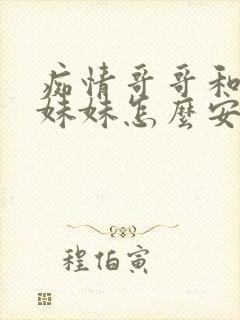 痴情哥哥和
妹妹怎麼安
程伯寅